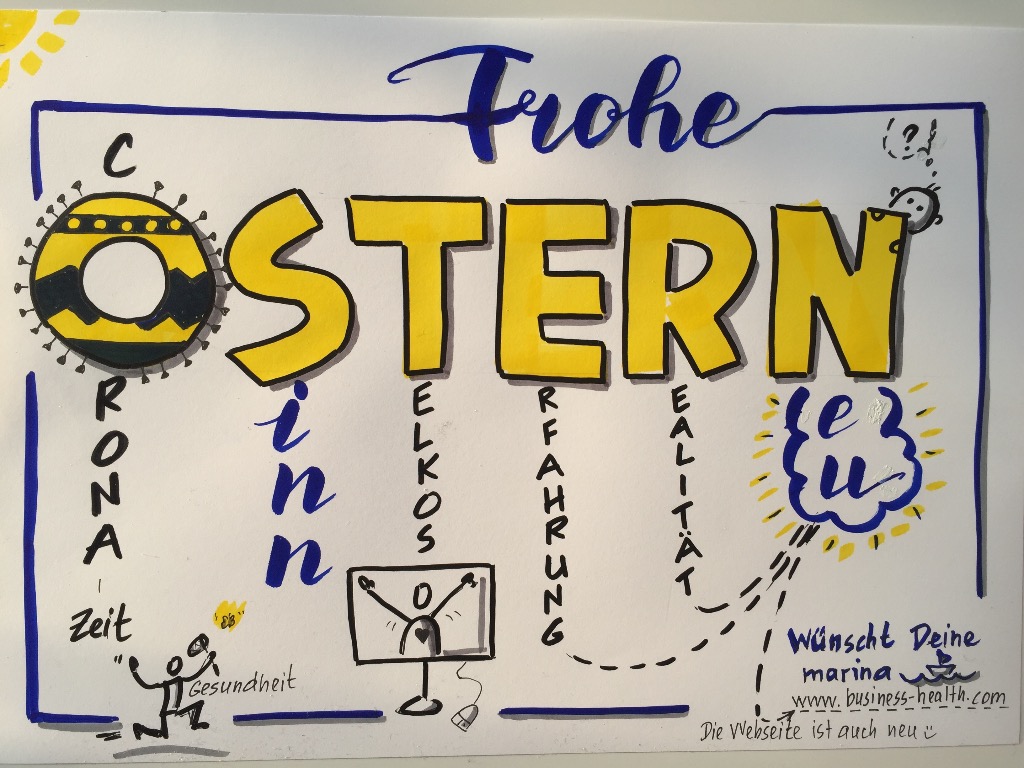 Frohe
?
C
OSTERN
RONA-
Zeit
inn
ELKOS
RFAHRUNG
EALITÄT
eu
Gesundheit
Wünscht Deine
marina
www.business-health.com
Die Webseite ist auch neu